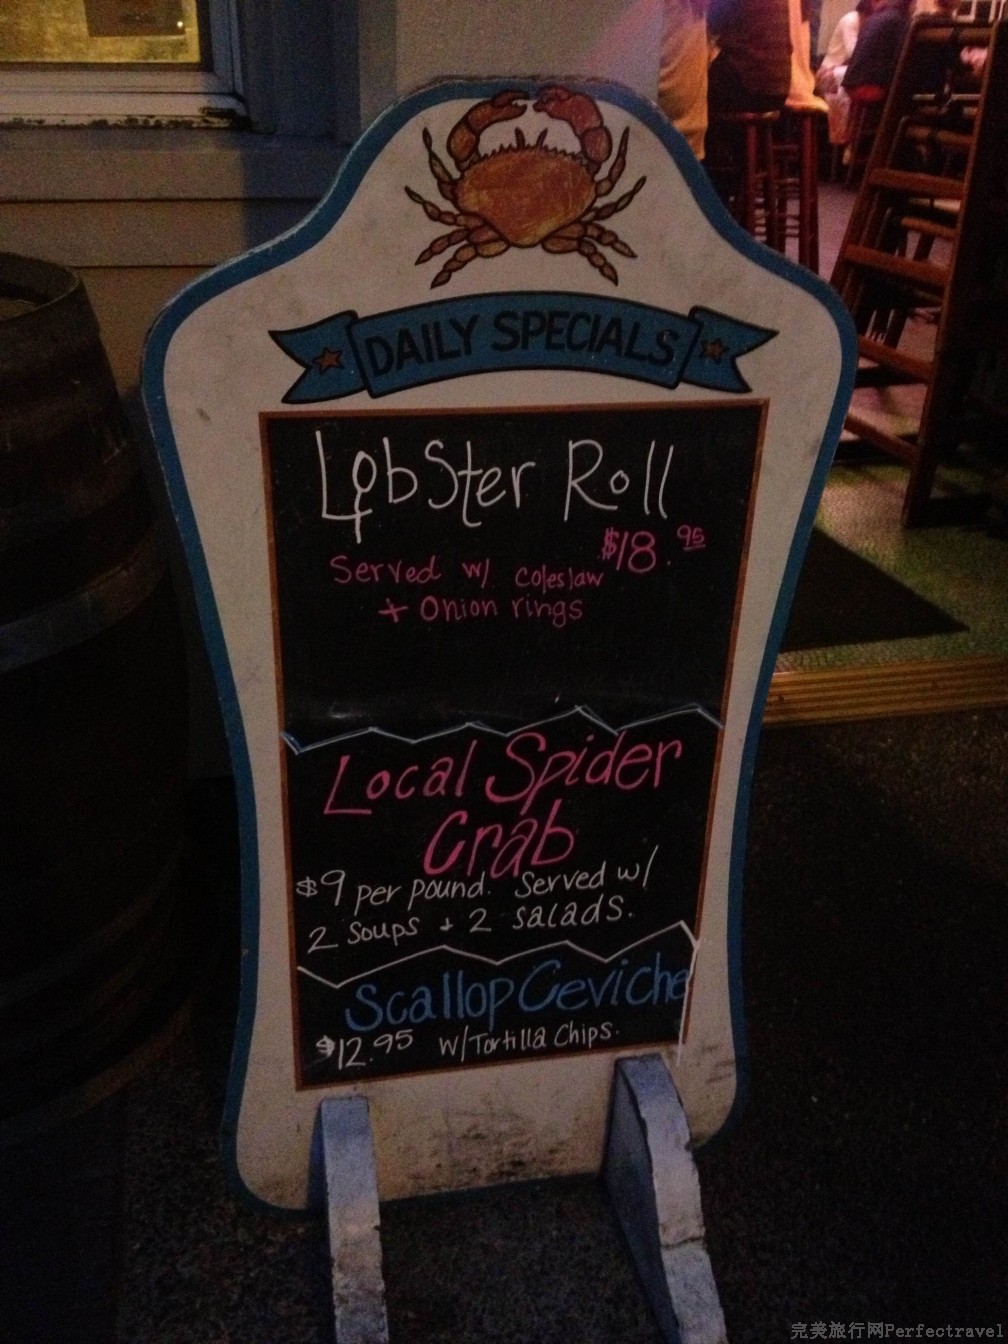 DAILY SPECIALS
Lobster Roll
$18.95
Served w/ coleslaw
+ Onion rings
Local Spider
Crab
$9 per pound. Served w/
2 soups + 2 salads.
Scallop Ceviche
$12.95 w/Tortilla Chips.
完美旅行网Perfectravel